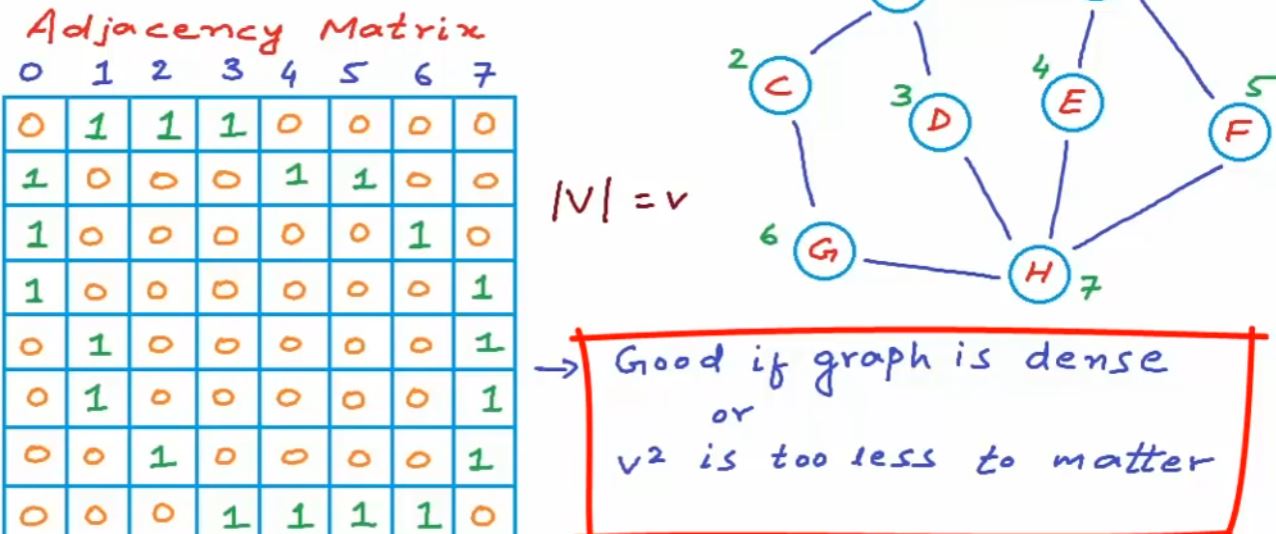 Adjacency Matrix
0 1 2 3 4 5 6 7
0 1 1 1 0 0 0 0
1 0 0 0 1 1 0 0
1 0 0 0 0 0 1 0
1 0 0 0 0 0 0 1
0 1 0 0 0 0 0 1
0 1 0 0 0 0 0 1
0 0 1 0 0 0 0 1
0 0 0 1 1 1 1 0
|V| = v
2 C
3 D
4 E
5 F
6 G
H 7
→ Good if graph is dense
or
v² is too less to matter